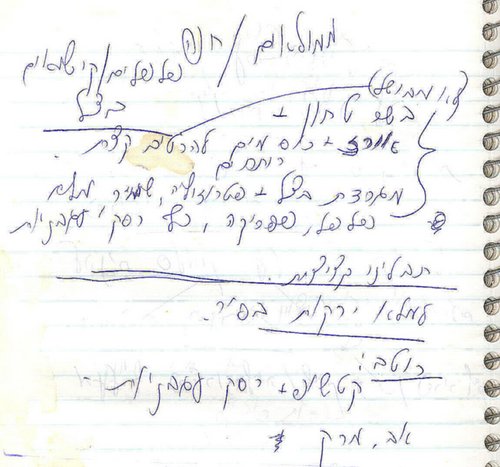 ממולאים / חוה
פלפלים/קישואים
בצל
(לא מבושל)
בשר טחון +
אורז + כוס מים להרטיב קצת.
רותחים
מגרדת בצל + פטרוזיליה, שמיר, מלח
פלפל, פפריקה, כף רסק עגבניות
תבליני קציצות.
למלא ירקות בסיר.
רוטב:
קטשופ + רסק עגבניות -
אב. מרק